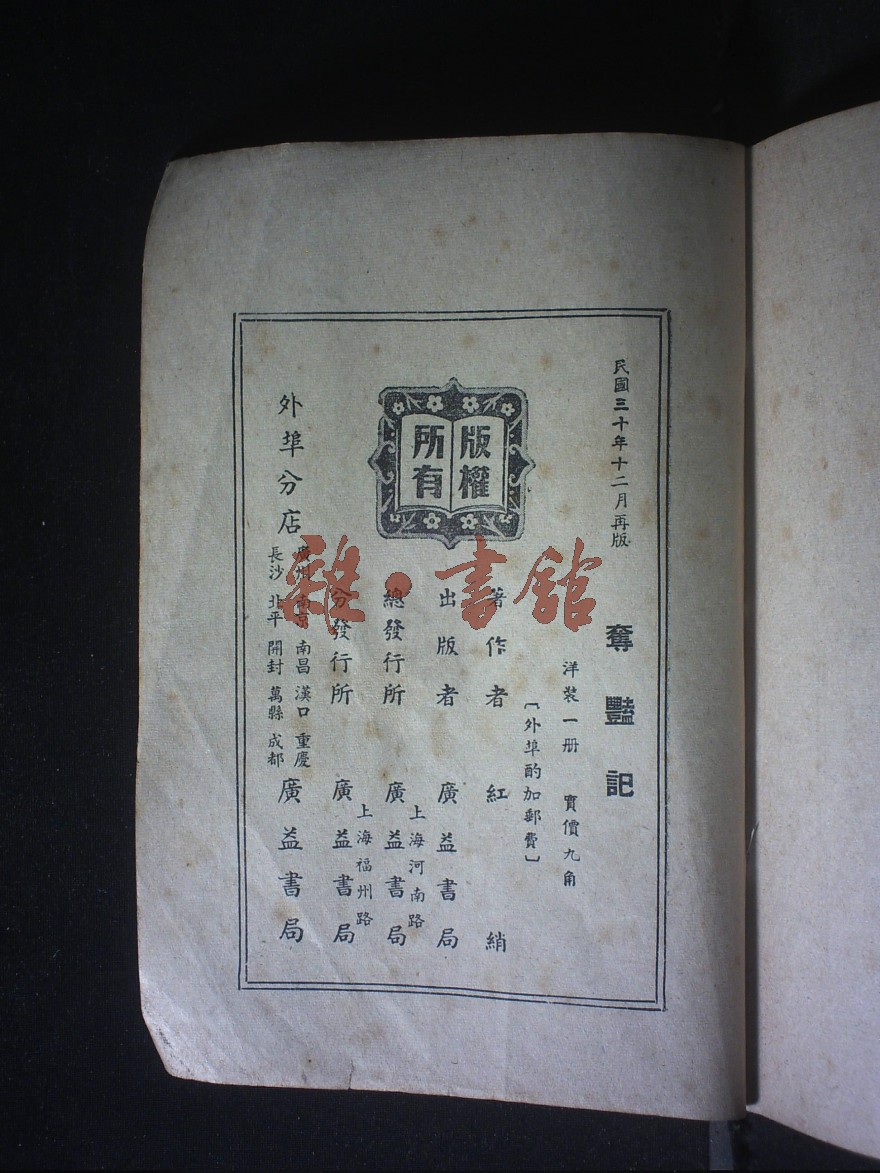 民國三十年十二月再版
奪豔記
洋裝一册 實價九角
〔外埠酌加郵費〕
著作者 紅綃
出版者 廣益書局
總發行所 上海河南路 廣益書局
分發行所 上海福州路 廣益書局
版權所有
外埠分店
廣州 南京 南昌 漢口 重慶
長沙 北平 開封 萬縣 成都
廣益書局
雜·書館